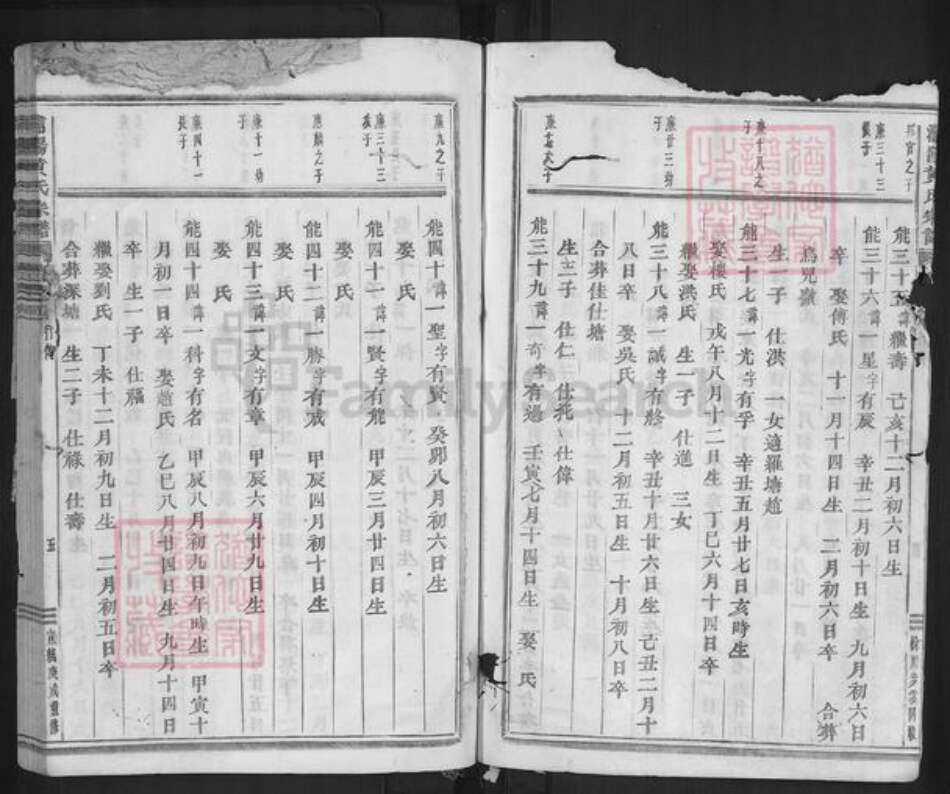 邦官之子
能三十五諱一稷壽 己亥十二月初六日生
康三十三
長子
能三十六諱一星字有辰 辛丑二月初十日生 九月初六日
卒 娶傅氏 十一月十四日生 二月初六日卒 合葬
烏兒墩
生一子 仕洪 一女適羅塘趙
能三十七諱一光字有孚 辛丑五月廿七日亥時生
娶樓氏 戊午八月十二日生 丁巳六月十四日卒
繼娶洪氏 生一子 仕進 三女
康廿三幼
子
能三十八諱一誠字有終 辛丑十月廿六日生 己丑二月十
八日卒 娶吳氏 十二月初五日生 十月初八日卒
合葬佳仕塘
生三子 仕仁 仕飛 仕偉
能三十九諱一奇字有遇 壬寅七月十四日生 娶 氏
康九之子
能四十諱一聖字有賢 癸卯八月初六日生
娶 氏
康三十三
次子
能四十一諱一賢字有能 甲辰三月廿四日生
娶 氏
康麟之子
能四十二諱一勝字有成 甲辰四月初十日生
娶 氏
康十一幼
子
能四十三諱一文字有章 甲辰六月廿九日生
娶 氏
康四十一
長子
能四十四諱一科字有名 甲辰八月初九日午時生 甲寅十
月初一日卒 娶趙氏 乙巳八月廿四日生 九月十四日
卒 生一子 仕福
繼娶劉氏 丁未十二月初九日生 二月初五日卒
合葬深塘 生二子 仕祿 仕壽
黃氏宗譜
五
FamilySearch